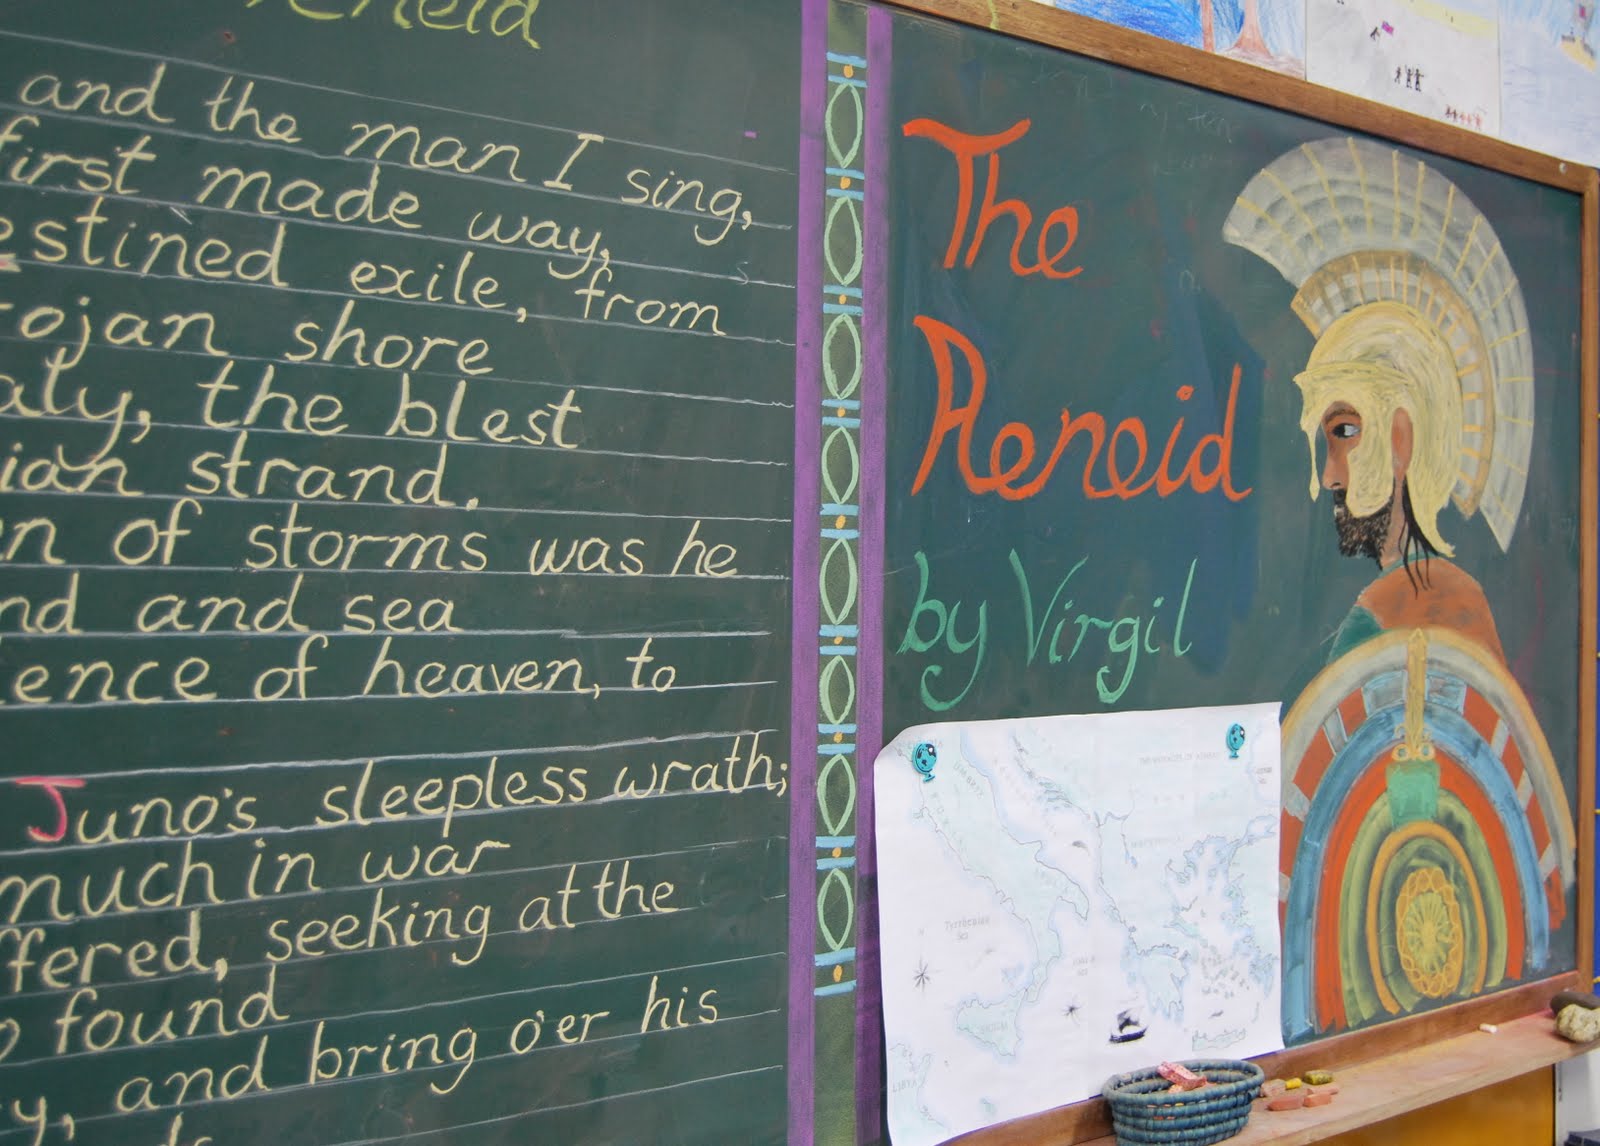 Aeneid
and the man I sing,
first made way,
estined exile, from
rojan shore
aly, the blest
ian strand.
en of storms was he
nd and sea
lence of heaven, to
Juno's sleepless wrath;
much in war
ffered, seeking at the
o found
y, and bring o'er his
ds
The
Aeneid
by Virgil
Tyrrhenian
Sea
LIBYA